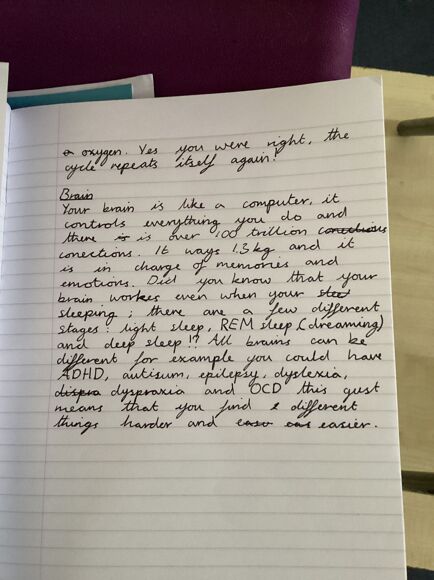 oxygen. Yes you were right, the
cycle repeats itself again!
Brain
Your brain is like a computer, it
controls everything you do and
there is is over 100 trillion conections
conections. It ways 1.3 kg and it
is in charge of memories and
emotions. Did you know that your
brain workes even when your slee
sleeping; there are a few different
stages: light sleep, REM sleep (dreaming)
and deep sleep!? All brains can be
different for example you could have
ADHD, autisum, epilepsy, dyslexia,
dispra dyspraxia and OCD this gust
means that you find different
things harder and easier.